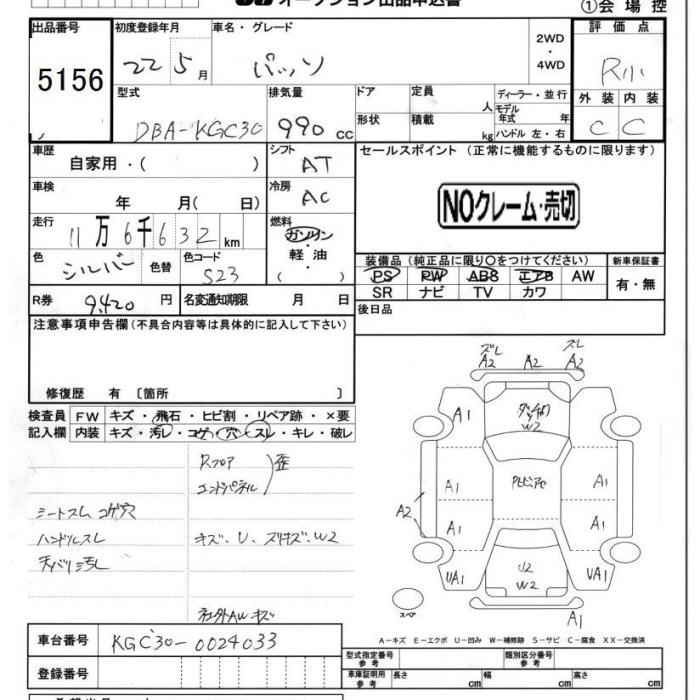 オークション出品申込書
①会場控
出品番号
5156
初度登録年月
22 5月
車名・グレード
パッソ
2WD
・
4WD
評価点
R小
外装 内装
C C
型式
DBA-KGC30
排気量
990 cc
ドア
形状
定員
人
積載
kg
ディーラー・並行
モデル
年式 年
ハンドル 左・右
車歴
自家用・( )
シフト
AT
セールスポイント (正常に機能するものに限ります)
NOクレーム・売切
車検
年 月( 日)
冷房
AC
走行
11万6千632km
燃料
ガソリン
・
軽油
( )
色
シルバー
色替
色コード
S23
装備品 (純正品に限り○をつけてください)
PS PW ABS エアB AW
SR ナビ TV カワ
新車保証書
有・無
R券 9,420円
名変通知期限 月 日
後日品
注意事項申告欄(不具合内容等は具体的に記入して下さい)
修復歴 有〔箇所 〕
検査員
記入欄
FW キズ・飛石・ヒビ割・リペア跡・×要
内装 キズ・汚レ・コゲ・穴・スレ・キレ・破レ
Rフロア
エンドパネル
歪
シートスレ コゲ穴
ハンドルスレ
天バリ汚レ
キズ・U、スリキズ・W2
社外AWキズ
ズレ
A2
A2
ズレ
A2
A1
W2
A1
A1
A1
A2
A1
A1
UA1
U2
W2
UA1
A1
スペア
A-キズ E-エクボ U-凹み W-補修跡 S-サビ C-腐食 XX-交換済
車台番号 KGC30-0024033
登録番号
型式指定番号
参考
類別区分番号
参考
車庫証明用
参考
長さ cm
幅 cm
高さ cm